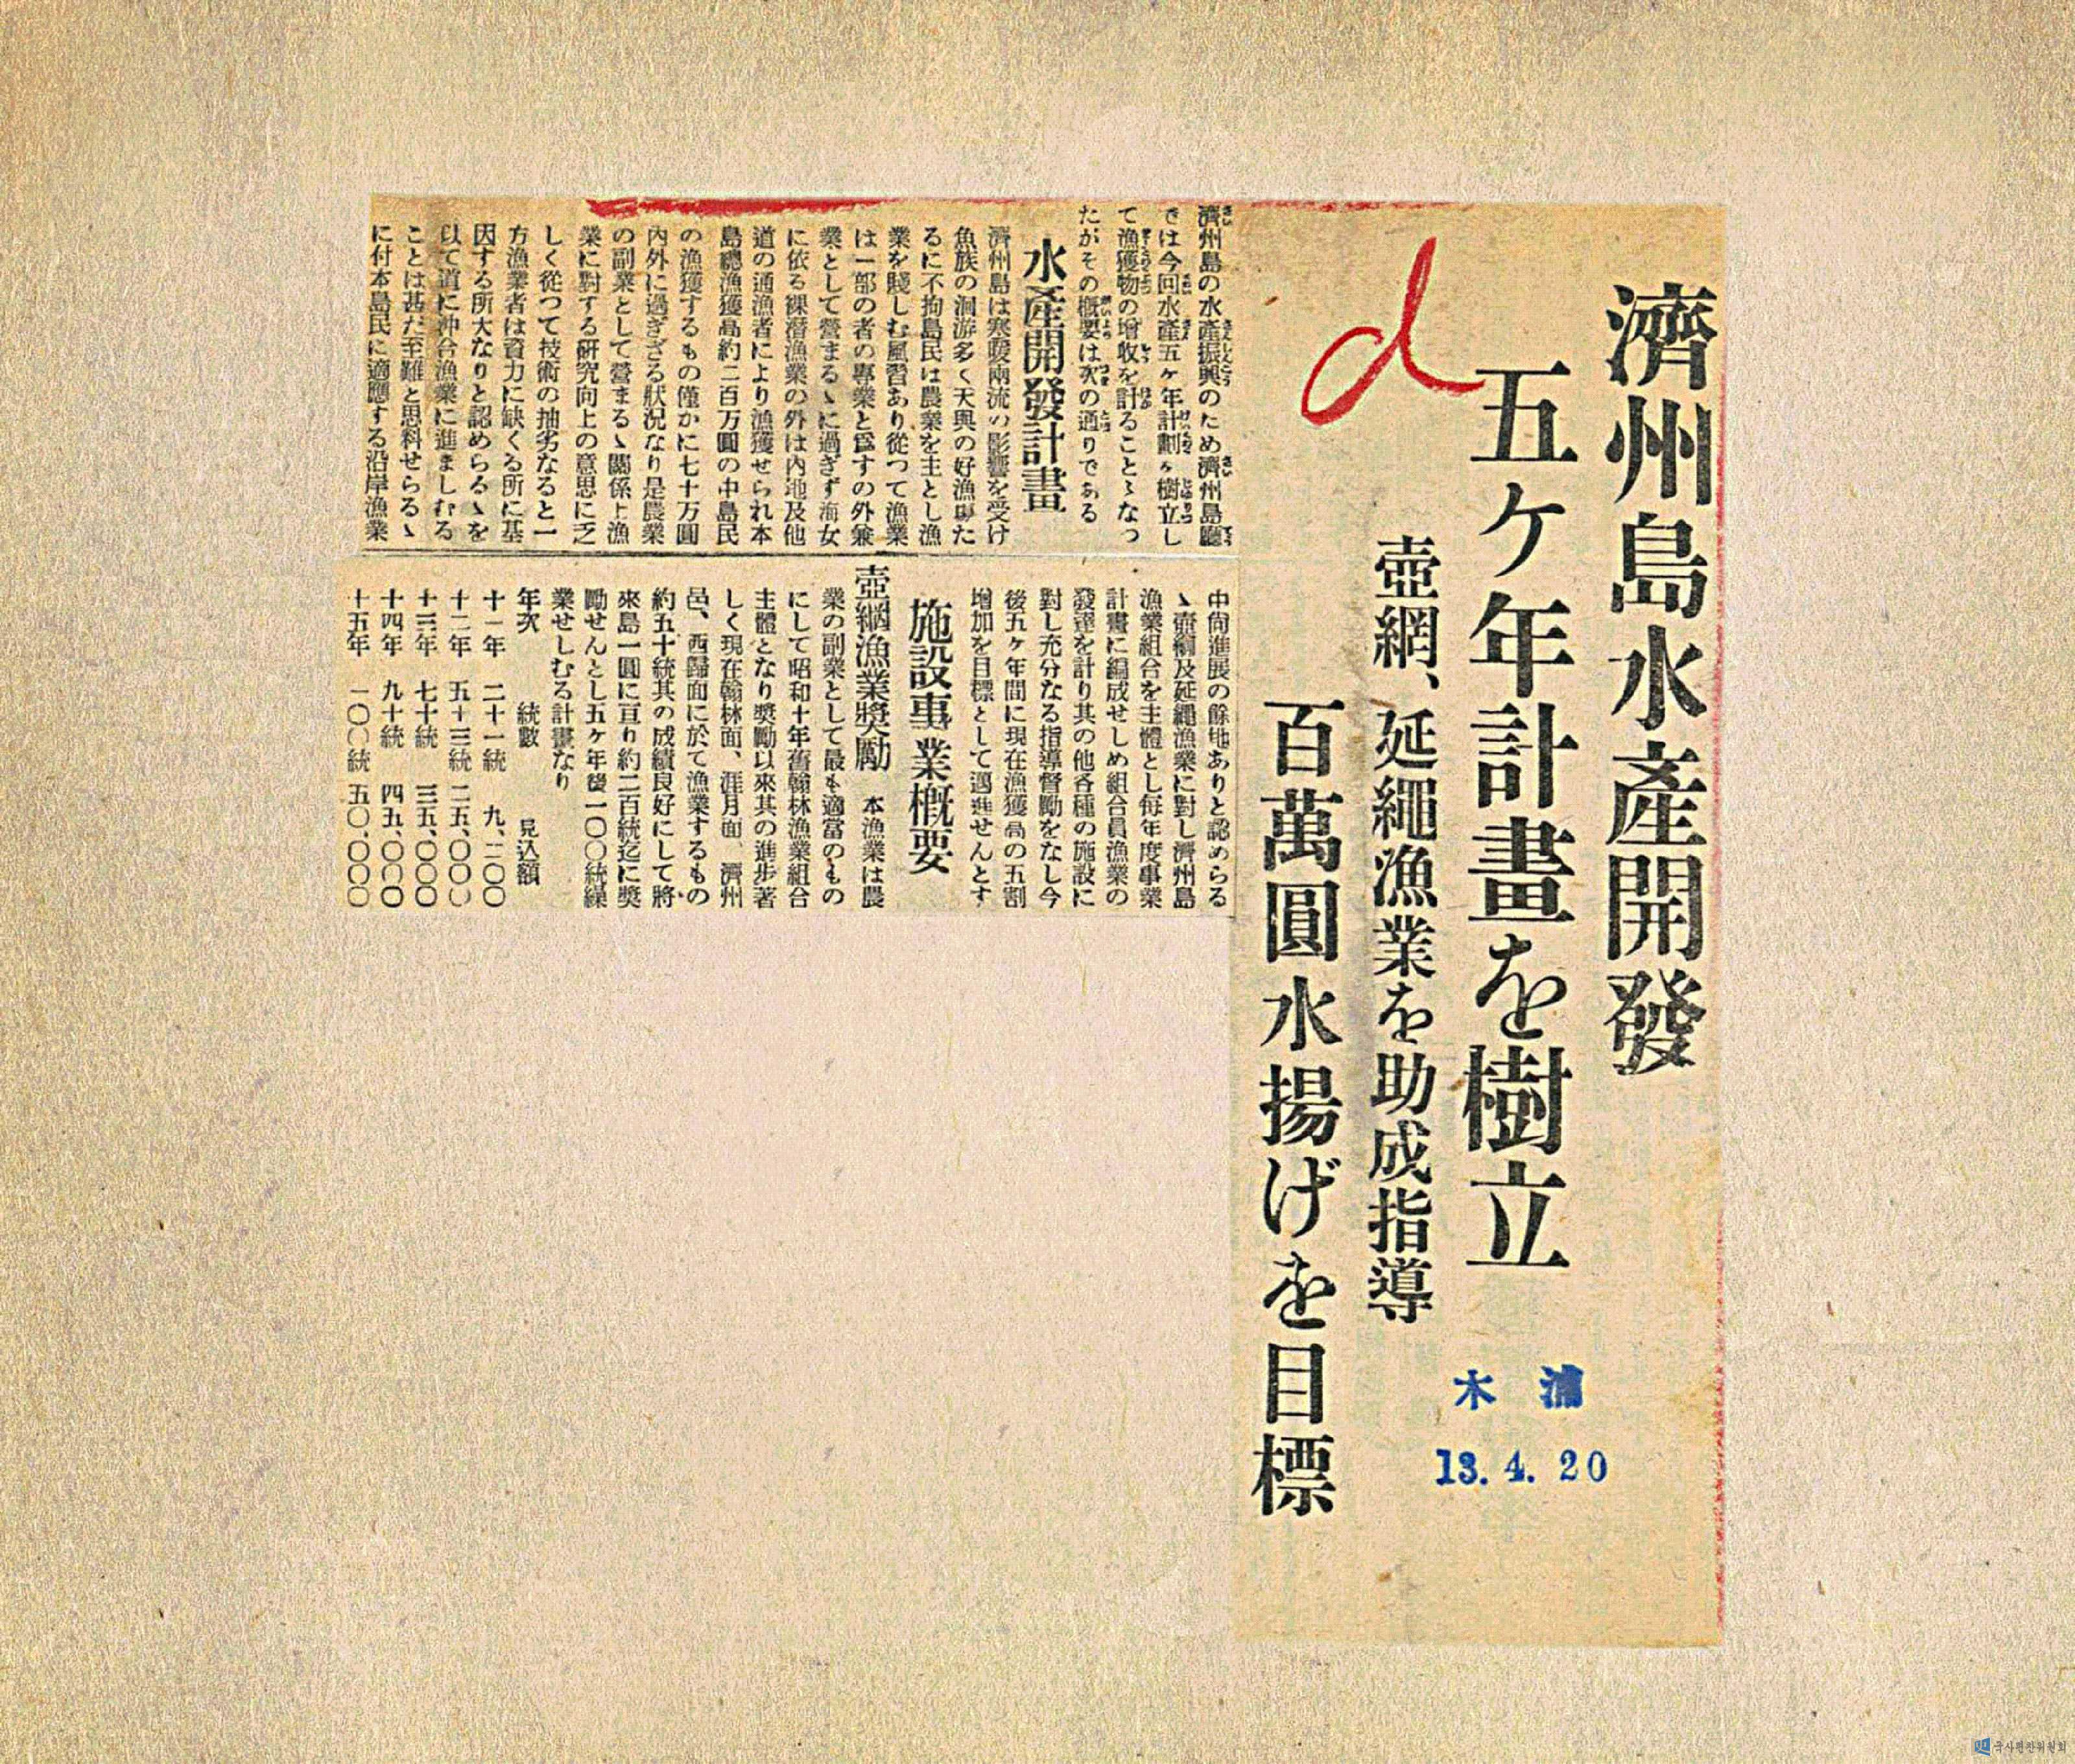 濟州島水產開發
五ケ年計畫を樹立
壺網、延繩漁業を助成指導
百萬圓水揚げを目標
木浦
13.4.20
d
濟州島の水產振興のため濟州島廳
では今回水產五ヶ年計劃を樹立し
て漁獲物の增收を計ることゝなつ
たがその槪要は次の通りである
水產開發計畫
濟州島は寒暖兩流の影響を受け
魚族の洄游多く天與の好漁場た
るに不拘島民は農業を主とし漁
業を賤しむ風習あり從つて漁業
は一部の者の專業と爲すの外兼
業として營まるゝに過ぎず海女
に依る裸潛漁業の外は內地及他
道の通漁者により漁獲せられ本
島總漁獲高約二百万圓の中島民
の漁獲するもの僅かに七十万圓
內外に過ぎざる狀況なり是農業
の副業として營まるゝ關係上漁
業に對する硏究向上の意思に乏
しく從つて技術の拙劣なると一
方漁業者は資力に缺くる所に基
因する所大なりと認めらるゝを
以て道に沖合漁業に進ましむる
ことは甚だ至難と思料せらるゝ
に付本島民に適應する沿岸漁業
中尙進展の餘地ありと認めらる
ゝ壺網及延繩漁業に對し濟州島
漁業組合を主體とし每年度事業
計畫に編成せしめ組合員漁業の
發達を計り其の他各種の施設に
對し充分なる指導督勵をなし今
後五ヶ年間に現在漁獲高の五割
增加を目標として邁進せんとす
施設事業槪要
壺網漁業奬勵 本漁業は農
業の副業として最も適當のもの
にして昭和十年舊翰林漁業組合
主體となり奬勵以來其の進步著
しく現在翰林面、涯月面、濟州
邑、西歸面に於て漁業するもの
約五十統其の成績良好にして將
來島一圓に亘り約二百統迄に奬
勵せんとし五ヶ年後一〇〇統繰
業せしむる計畫なり
年次 統數 見込額
十一年 二十一統 九、二〇〇
十二年 五十三統 二五、〇〇〇
十三年 七十統 三五、〇〇〇
十四年 九十統 四五、〇〇〇
十五年 一〇〇統 五〇、〇〇〇
국사편찬위원회